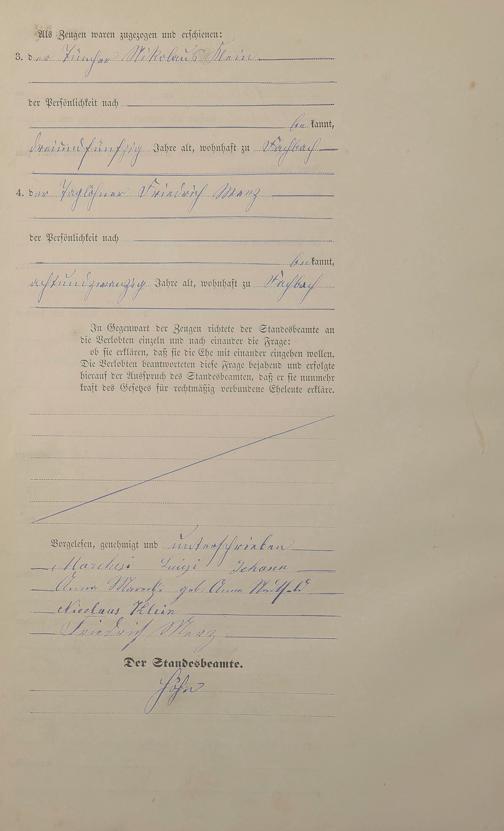 Als Zeugen waren zugezogen und erschienen:
3. der Tüncher Nikolaus Klein
der Persönlichkeit nach
bekannt,
dreiundfünfzig Jahre alt, wohnhaft zu Fachbach
4. der Taglöhner Friedrich Merz
der Persönlichkeit nach
bekannt,
achtundzwanzig Jahre alt, wohnhaft zu Fachbach
In Gegenwart der Zeugen richtete der Standesbeamte an
die Verlobten einzeln und nach einander die Frage:
ob sie erklären, daß sie die Ehe mit einander eingehen wollen.
Die Verlobten beantworteten diese Frage bejahend und erfolgte
hierauf der Ausspruch des Standesbeamten, daß er sie nunmehr
kraft des Gesetzes für rechtmäßig verbundene Eheleute erkläre.
Vorgelesen, genehmigt und unterschrieben
Luigi Johann
Anna geb. Anna
Nicolaus Klein
Friedrich Merz
Der Standesbeamte.
Höhn